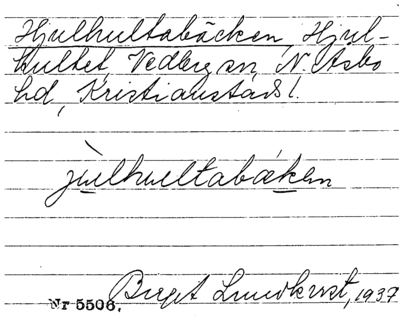 Hjulhultabäcken, Hjul-
hultet, Vedby sn, N. Åsbo
hd, Kristianstads l.
jùlhultabäken
Birgit Lundkvist, 1937
Nr 5506.